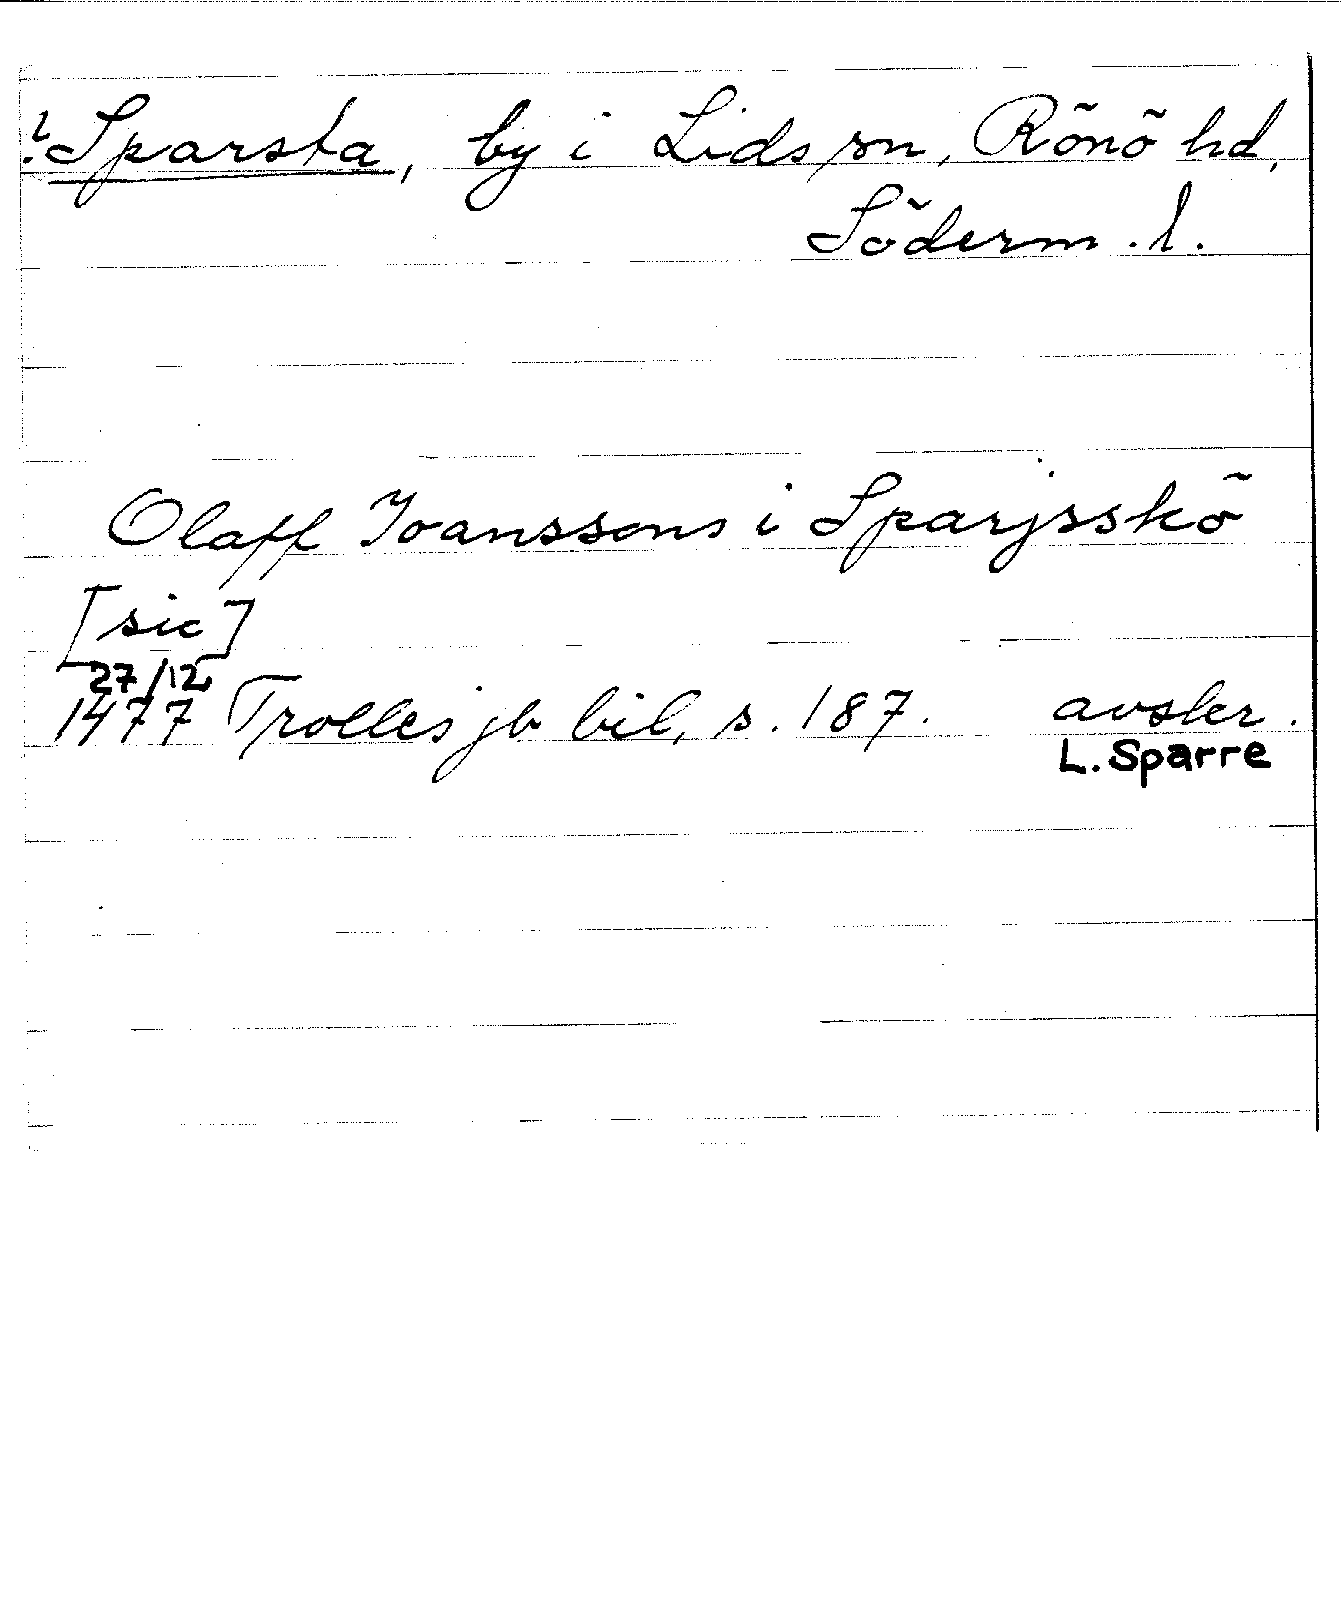 ? Sparsta, by i Lids sn, Rönö hd,
Söderm. l.
Olaff Joanssons i Sparjsskö
[sic]
27/12
1477 Trolles jb bil, s. 187. avskr.
L. Sparre